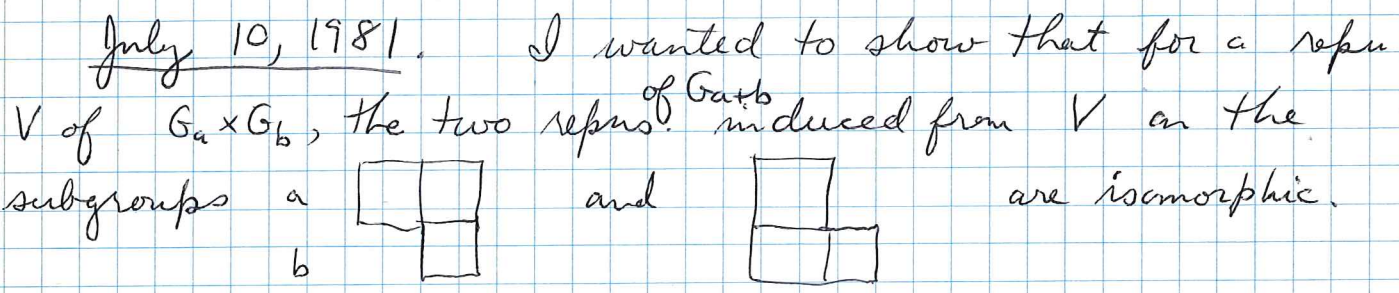 July 10, 1981. I wanted to show that for a repn
V of Ga × Gb, the two repns. of Ga+b induced from V on the
subgroups a and are isomorphic.
b